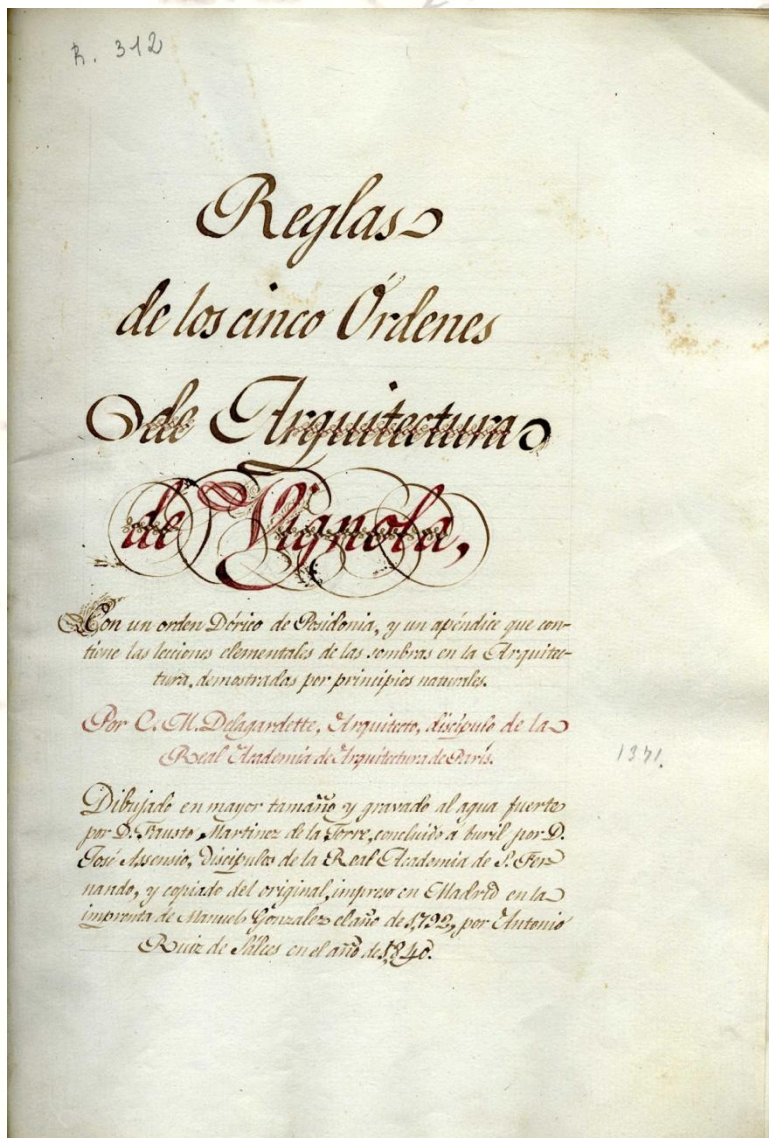 R. 312
Reglas
de los cinco Órdenes
de Arquitectura
de Vignola,
Con un orden Dórico de Posidonia, y un apéndice que con-
tiene las lecciones elementales de las sombras en la Arquitec-
tura, demostradas por principios naturales.
Por C. M. Delagardette, Arquitecto, discípulo de la
Real Academia de Arquitectura de París.
1371.
Dibujado en mayor tamaño y gravado al agua fuerte
por D. Fausto Martinez de la Torre, concluido á buril por D.
José Assensio, Discípulos de la Real Academia de S. Fer-
nando, y copiado del original, impreso en Madrid en la
imprenta de Manuel Gonzalez el año de 1,792, por Antonio
Ruiz de Salces en el año de 1,840.